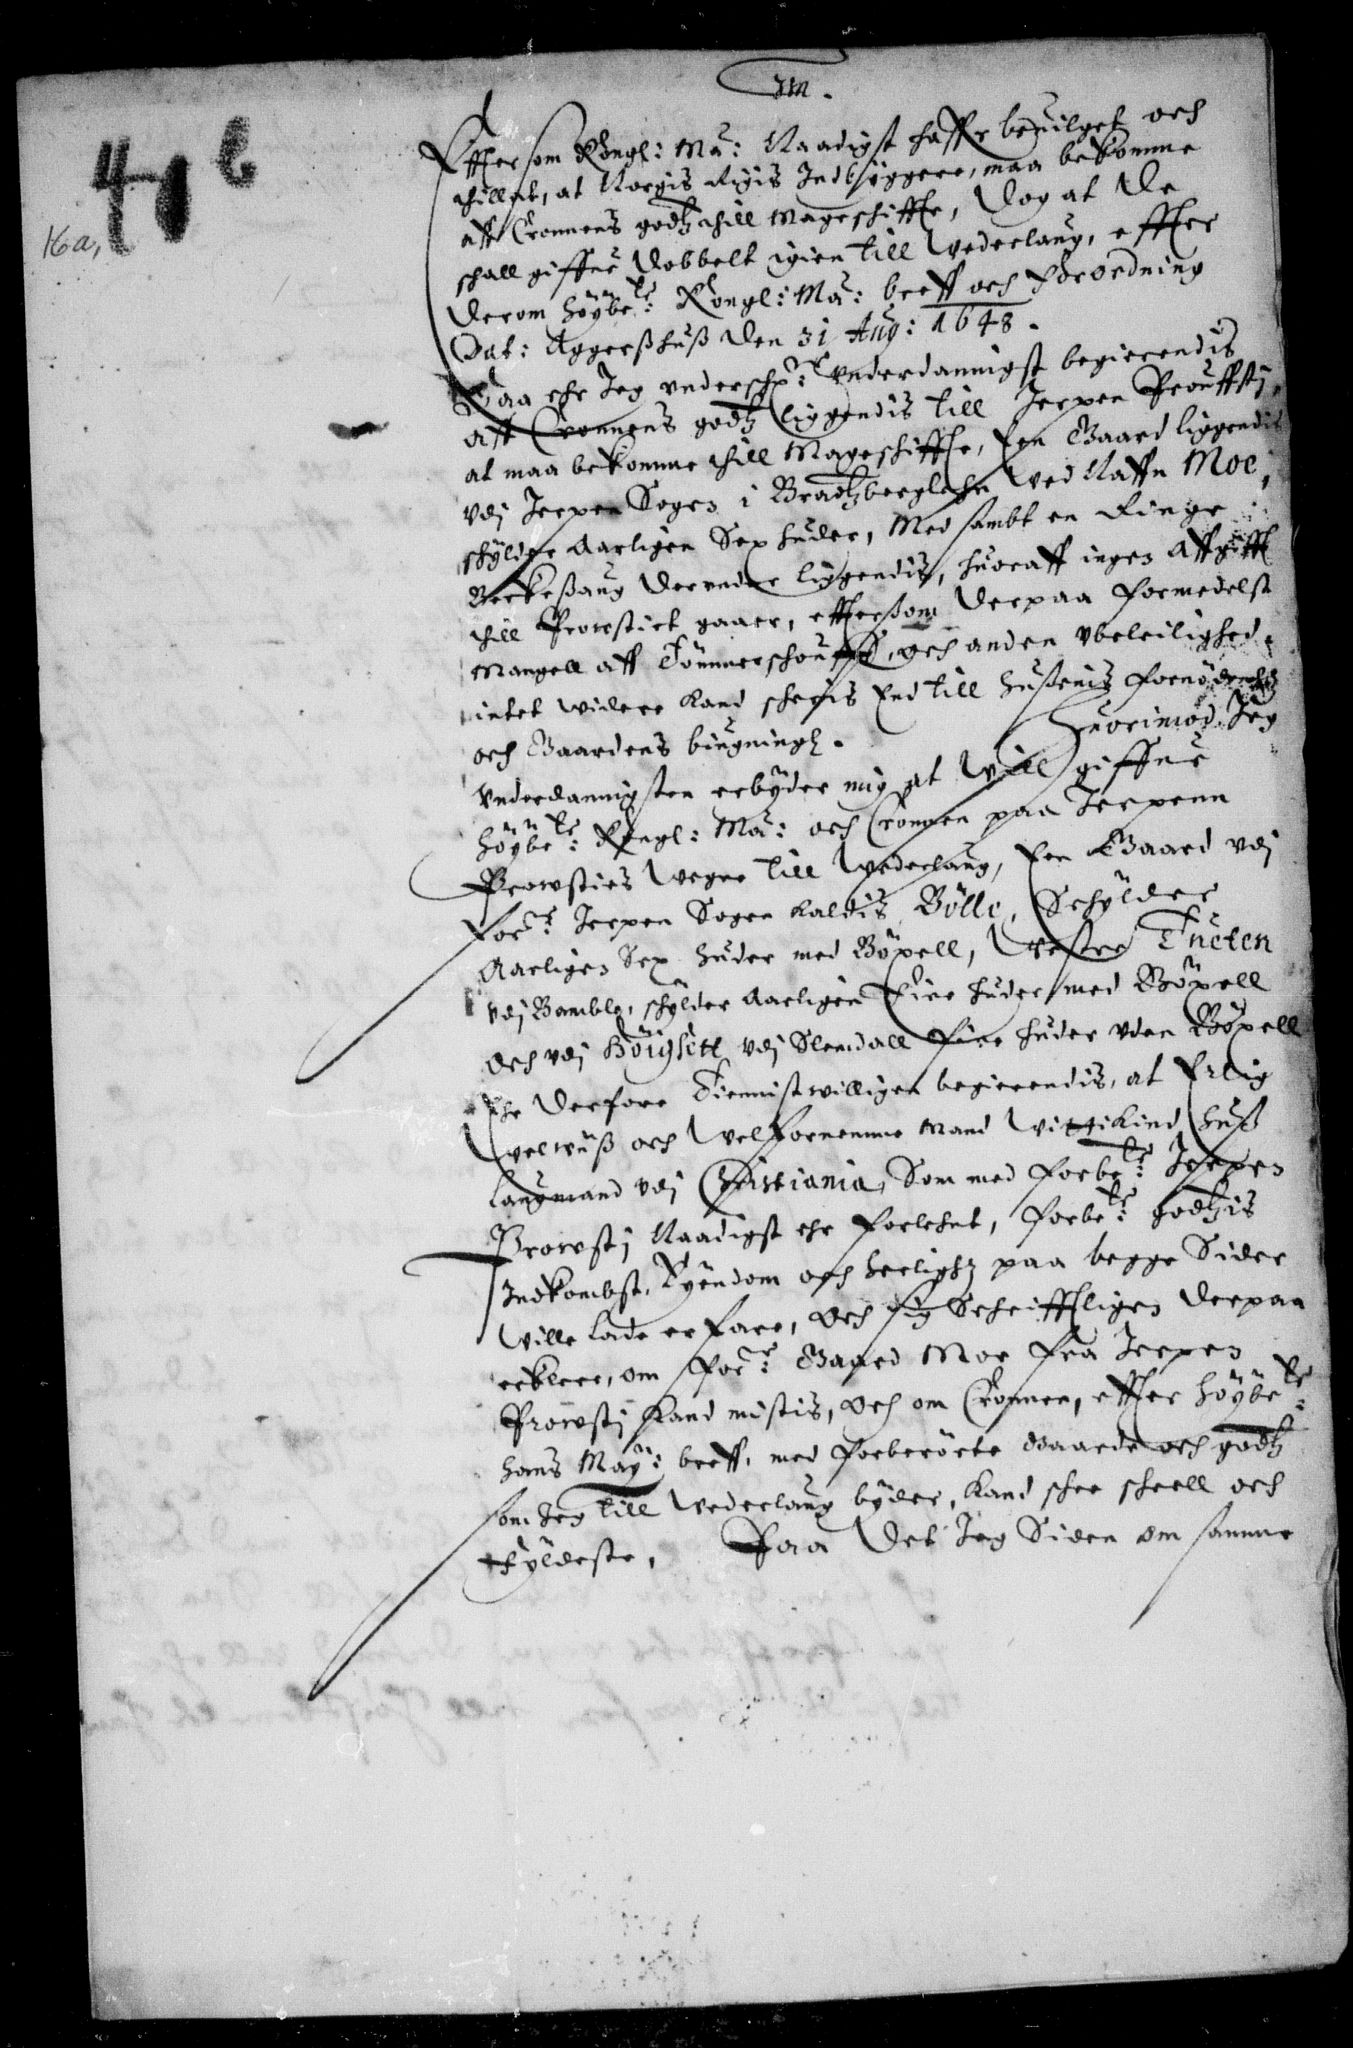 Jm.
41 b
16a,
Effter som Kongl: Ma: Naadigst haffr beuilget och
thillat, at Norgis Rigis Indbyggere, maa bekomme
aff Cronnens godtz thill Mageschiffte, dog at de
schall giffue dobbelt igien till Wederlaug, effter
derom höybete: Kongl: Ma: breff och Forordning
Dat: Aggerßhuß den 31 Aug: 1648.
Saa ehr Jeg underschr: underdannigst begierendis
aff Cronnens godtz liggendis till Jerpen Prouffstj,
at maa bekomme thill Mageschiffte, Een Gaard liggendis
udj Jerpen Sogen i Bradtzberglehn ved Naffn Moe,
schylder Aarligen Sex huder, Med sambt en Ringe
Beckesaug derunder liggendis, huoraff ingen Affgifft
thill Prowstiet gaaer, effterßom derpaa formedelst
Mangell aff Tömmerschouff, och anden ubeleilighed,
intet widere kand scheris End till Hußenis fornödenhz
och Gaardens biugningh. Huorimod Jeg
Underdannigsten erbyder mig at will giffue
höybete: Kongl: Ma: och Cronnen paa Jerpenn
Prowsties Wegne till Wederlaug, Een Gaard udj
forne: Jerpen Sogen kaldis Bölle, Schylder
Aarligen Sex huder med Böxell, Westre Tueten
udj Bamble, schylder Aarligen Fire huder med Böxell
Och udj Höigsett udj Slemdall Fire huder uden Böxell
Ehr derfore Tiennistwilligen begierendis, at Erlig
welwiiß och Welfornemme Mand Wittikind Huß
Laugmand udj Christiania, Som med forbete: Jerpen
Prowstj Naadigst ehr forlehnt, forbete: godtzis
Indkombst, Eyendom och herlighz paa begge Sider
Wille lade erfare, Och sig Schrifftligen derpaa
erklere, om forne: Gaard Moe fra Jerpen
Prowstj kand mistis, Och om Cronnen, effter höybete:
hans May: breff, med forberörte Gaarde och godtz
som Jeg till Wederlaug byder, kand schee scheell och
thyldeste, Paa det Jeg Siden om samme